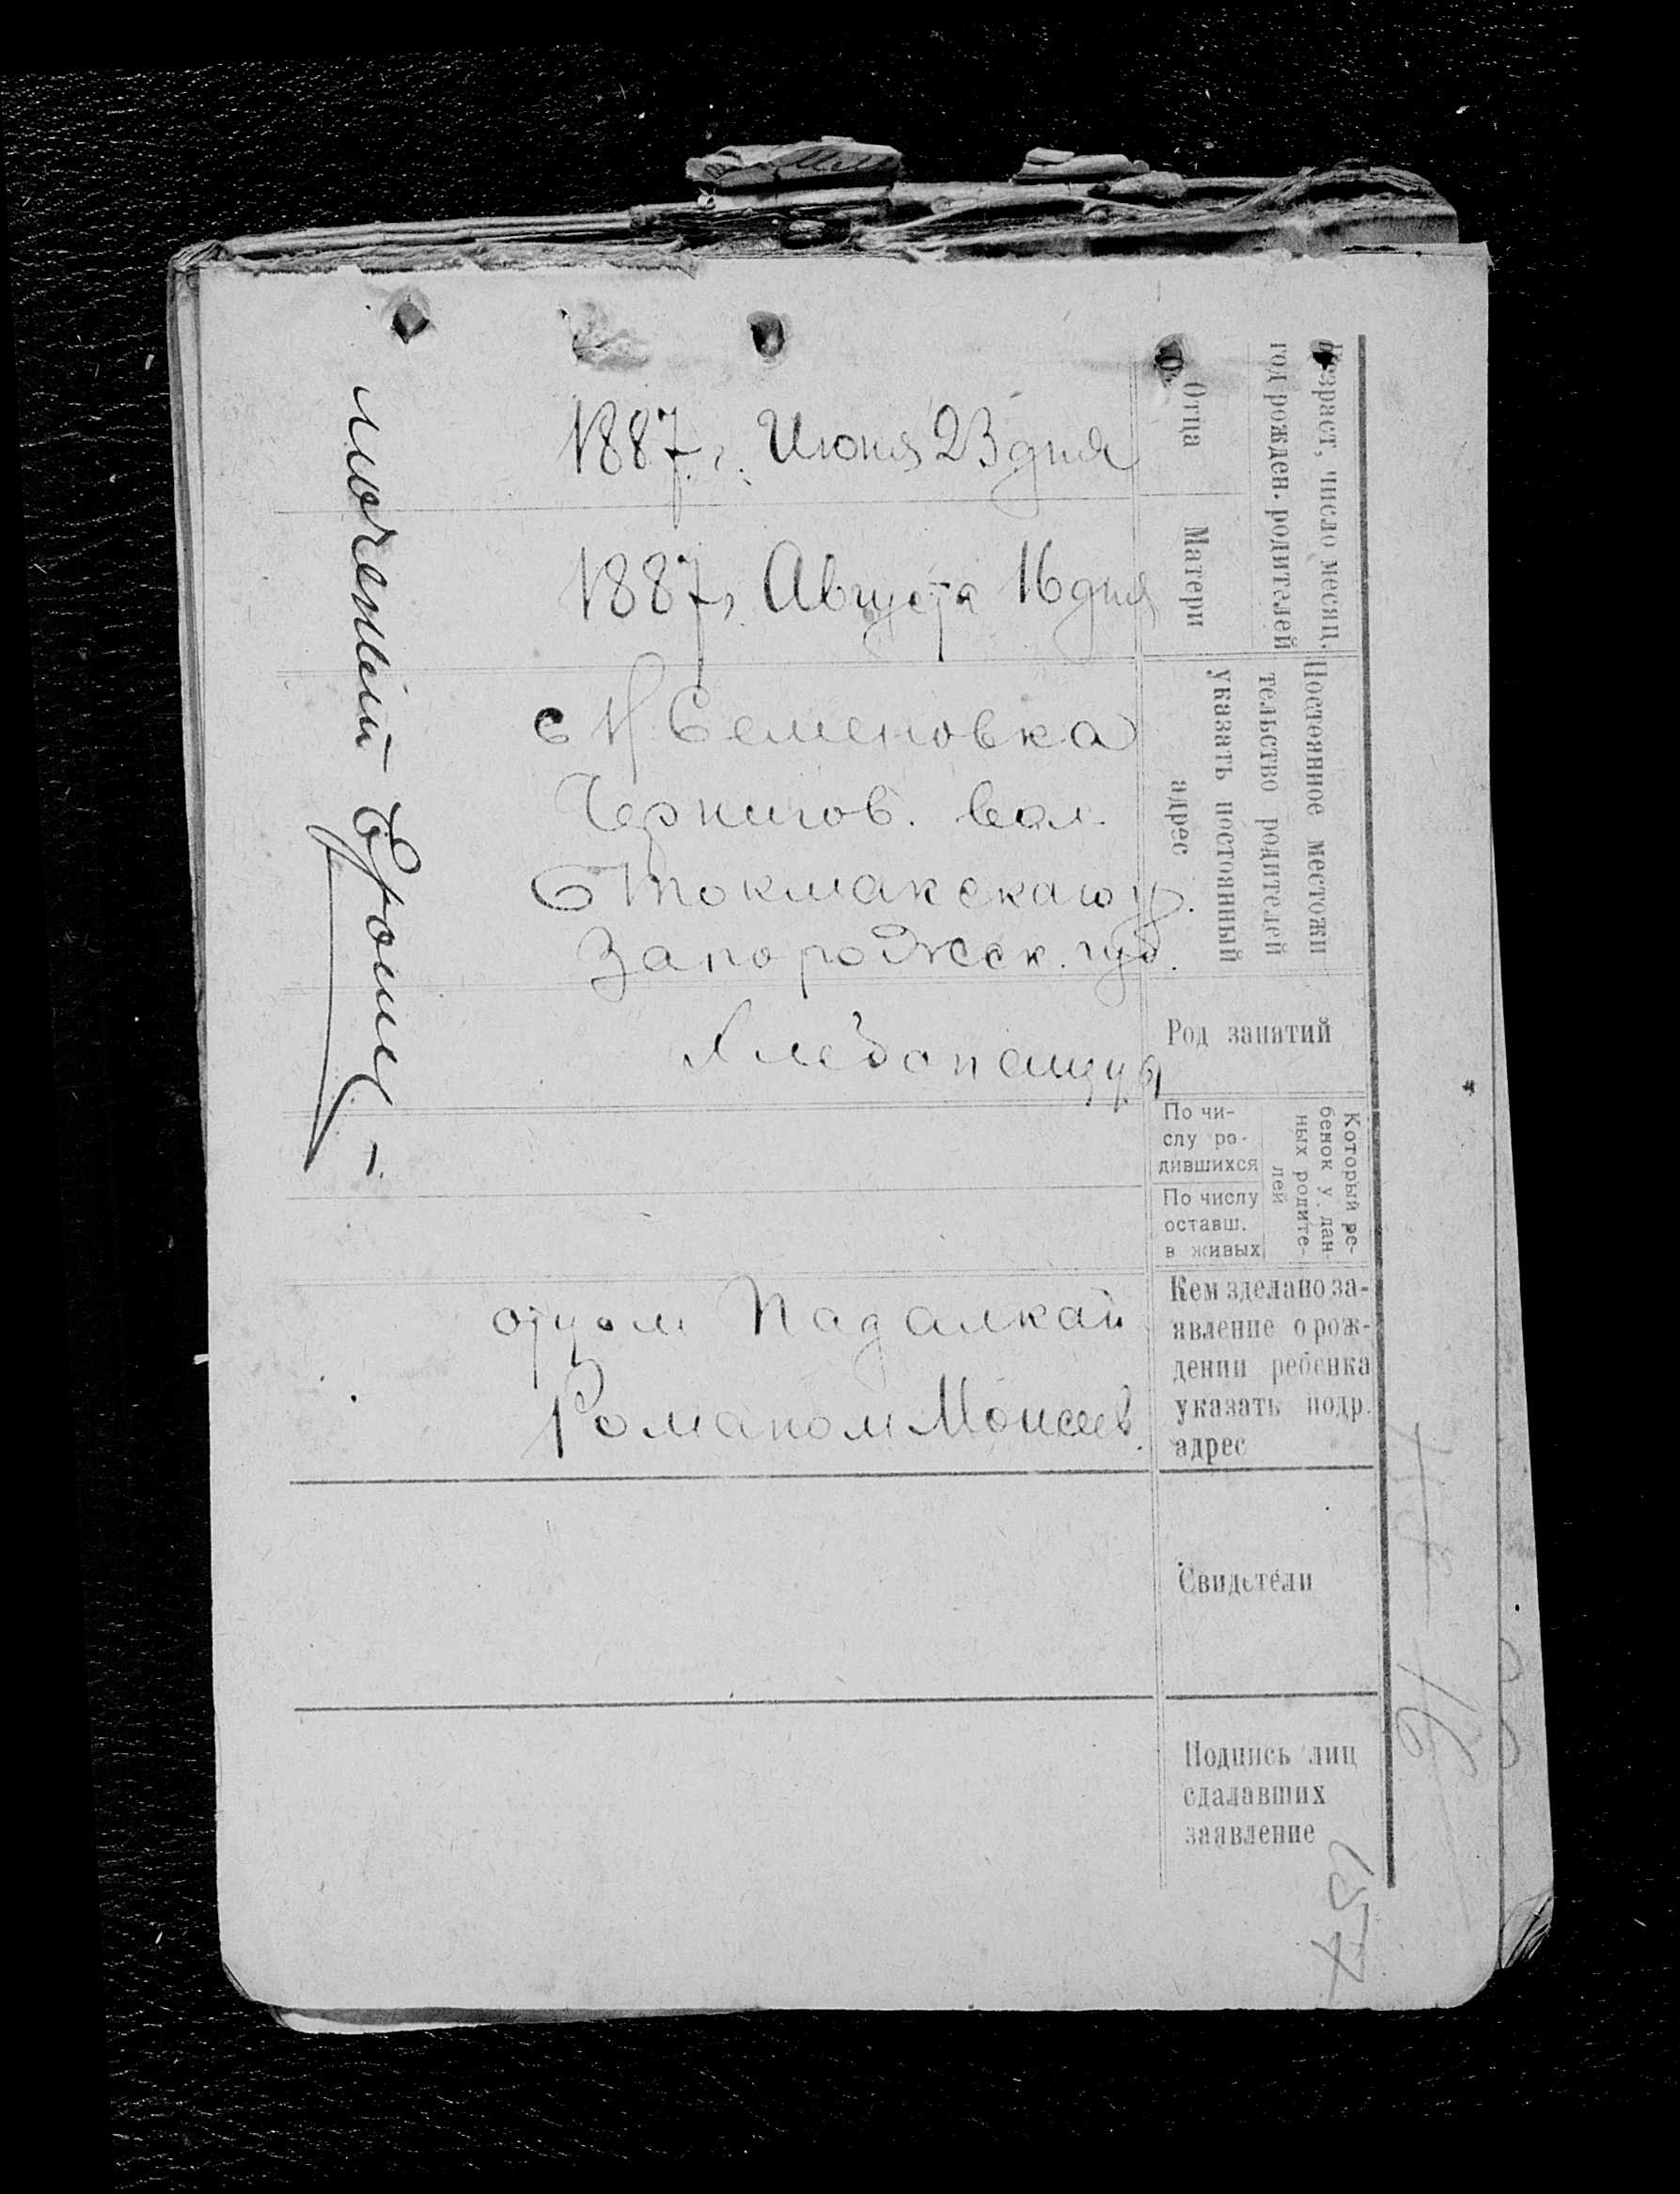 Возраст, число месяц.
год рожден. родителей
Отца
1887 г. Июня 23 дня
Матери
1887 г. Августа 16 дня
Постоянное местожи
тельство родителей
указать постоянный
адрес
с Н Семеновка
Чернигов. вол.
Б Токмакскаго у.
Запорожск. губ.
Род занятий
Хлебопашцы
Который ре-
бенок у дан-
ных родите-
лей
По чи-
слу ро-
дившихся
По числу
оставш.
в живых
Кем зделано за-
явление о рож-
дении ребенка
указать подр.
адрес
отцом Падалкай
Романом Моисеев.
Свидетели
Подпись лиц
сдалавших
заявление
16